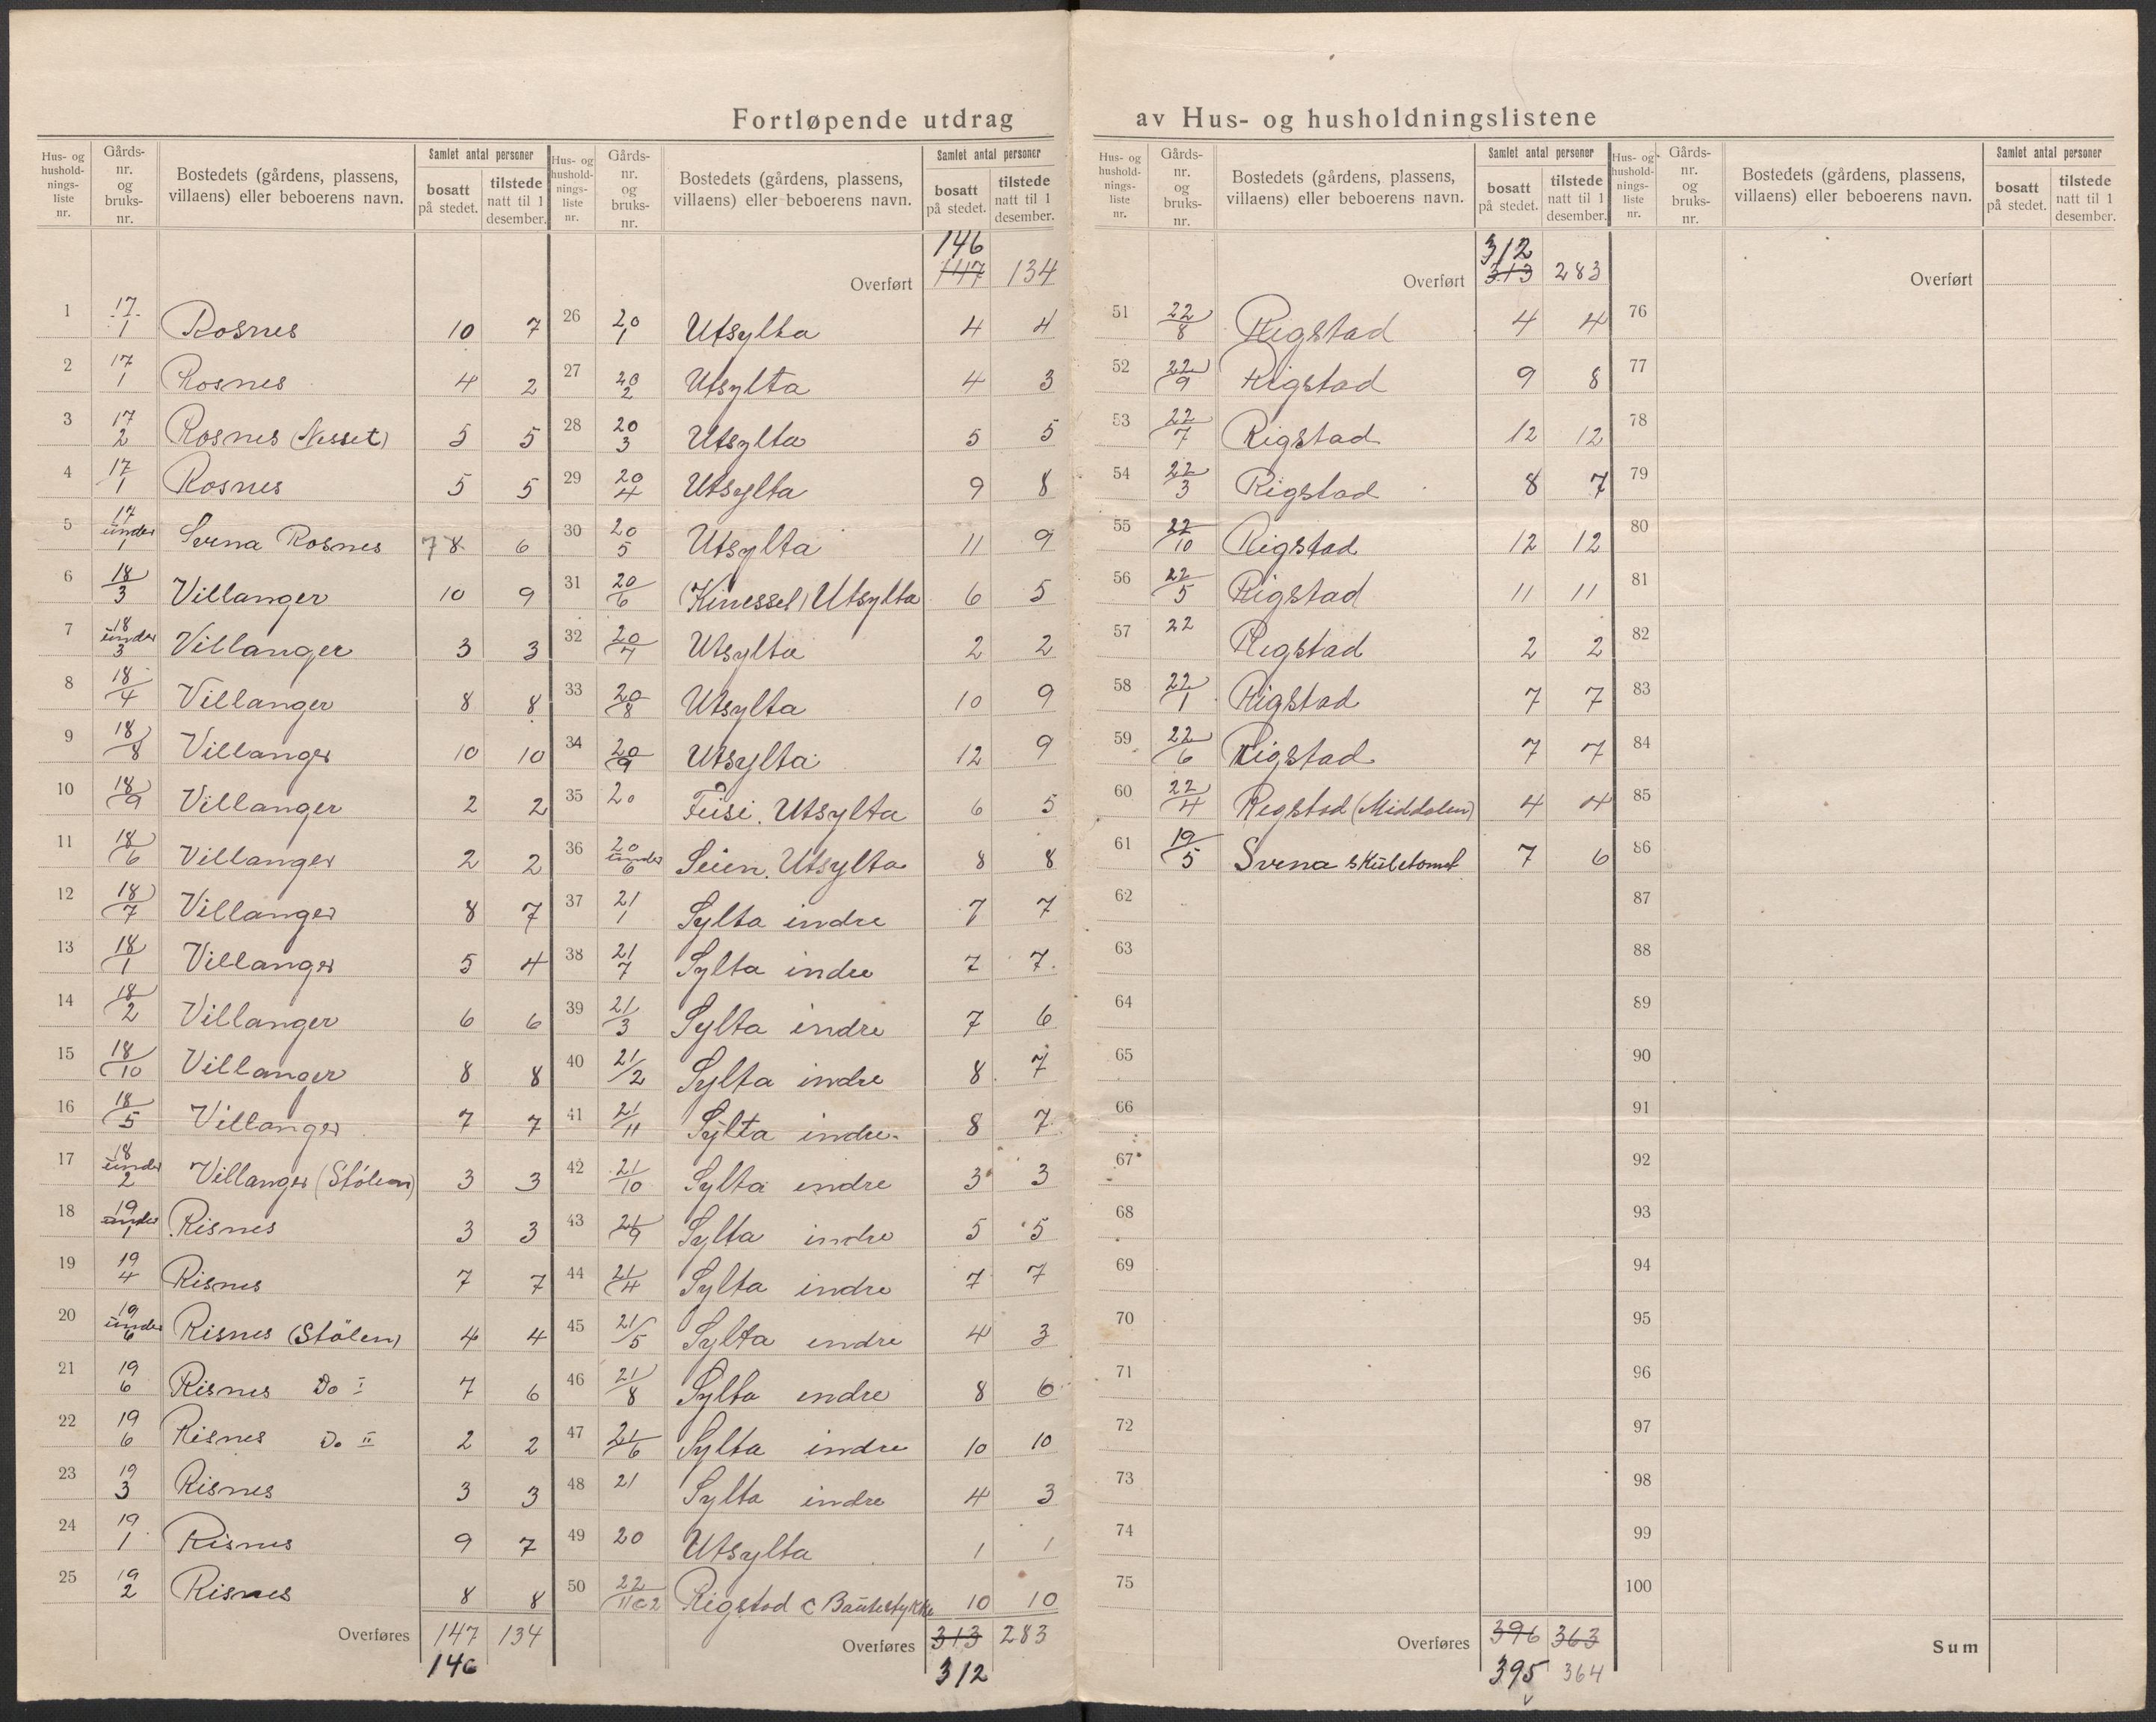 Fortløpende utdrag av Hus- og husholdningslistene
Hus- og husholdningsliste nr. | Gårdsnr. og bruksnr. | Bostedets (gårdens, plassens, villaens) eller beboerens navn. | Samlet antal personer | bosatt på stedet. | tilstede natt til 1 desember.
1 17/1 Rosnes 10 7
2 17/1 Rosnes 4 2
3 17/2 Rosnes (Nesset) 5 5
4 17/1 Rosnes 5 5
5 17 under 1 Svena Rosnes 7 8 6
6 18/3 Villanger 10 9
7 18 under 3 Villanger 3 3
8 18/4 Villanger 8 8
9 18/8 Villanger 10 10
10 18/9 Villanger 2 2
11 18/6 Villanger 2 2
12 18/7 Villanger 8 7
13 18/1 Villanger 5 4
14 18/2 Villanger 6 6
15 18/10 Villanger 8 8
16 18/5 Villanger 7 7
17 18 under 2 Villanger (Stölen) 3 3
18 19 under 1 Risnes 3 3
19 19/4 Risnes 7 7
20 19 under 6 Risnes (Stölen) 4 4
21 19/6 Risnes Do I 7 6
22 19/6 Risnes Do II 2 2
23 19/3 Risnes 3 3
24 19/1 Risnes 9 7
25 19/2 Risnes 8 8
Overføres 147 134
146
Hus- og husholdningsliste nr. | Gårdsnr. og bruksnr. | Bostedets (gårdens, plassens, villaens) eller beboerens navn. | Samlet antal personer | bosatt på stedet. | tilstede natt til 1 desember.
146
Overført 147 134
26 20/1 Utsylta 4 4
27 20/2 Utsylta 4 3
28 20/3 Utsylta 5 5
29 20/4 Utsylta 9 8
30 20/5 Utsylta 11 9
31 20/6 (Kinesset) Utsylta 6 5
32 20/7 Utsylta 2 2
33 20/8 Utsylta 10 9
34 20/9 Utsylta 12 9
35 20 Utsylta 6 5
36 20 under 6 Utsylta 8 8
37 21/1 Sylta indre 7 7
38 21/7 Sylta indre 7 7
39 21/3 Sylta indre 7 6
40 21/2 Sylta indre 8 7
41 21/11 Sylta indre 8 7
42 21/10 Sylta indre 3 3
43 21/9 Sylta indre 5 5
44 21/4 Sylta indre 7 7
45 21/5 Sylta indre 4 3
46 21/8 Sylta indre 8 6
47 21/6 Sylta indre 10 10
48 21 Sylta indre 4 3
49 20 Utsylta 1 1
50 22/11 c 2 Rigstad c Bautestykke 10 10
Overføres 313 283
312
Hus- og husholdningsliste nr. | Gårdsnr. og bruksnr. | Bostedets (gårdens, plassens, villaens) eller beboerens navn. | Samlet antal personer | bosatt på stedet. | tilstede natt til 1 desember.
312
Overført 313 283
51 22/8 Rigstad 4 4
52 22/9 Rigstad 9 8
53 22/7 Rigstad 12 12
54 22/3 Rigstad 8 7
55 22/10 Rigstad 12 12
56 22/5 Rigstad 11 11
57 22 Rigstad 2 2
58 22/1 Rigstad 7 7
59 22/6 Rigstad 7 7
60 22/4 Rigstad (Middalen) 4 4
61 19/5 Svena skuletomt 7 6
62
63
64
65
66
67
68
69
70
71
72
73
74
75
Overføres 396 363
395 364
Hus- og husholdningsliste nr. | Gårdsnr. og bruksnr. | Bostedets (gårdens, plassens, villaens) eller beboerens navn. | Samlet antal personer | bosatt på stedet. | tilstede natt til 1 desember.
Overført
76
77
78
79
80
81
82
83
84
85
86
87
88
89
90
91
92
93
94
95
96
97
98
99
100
Sum